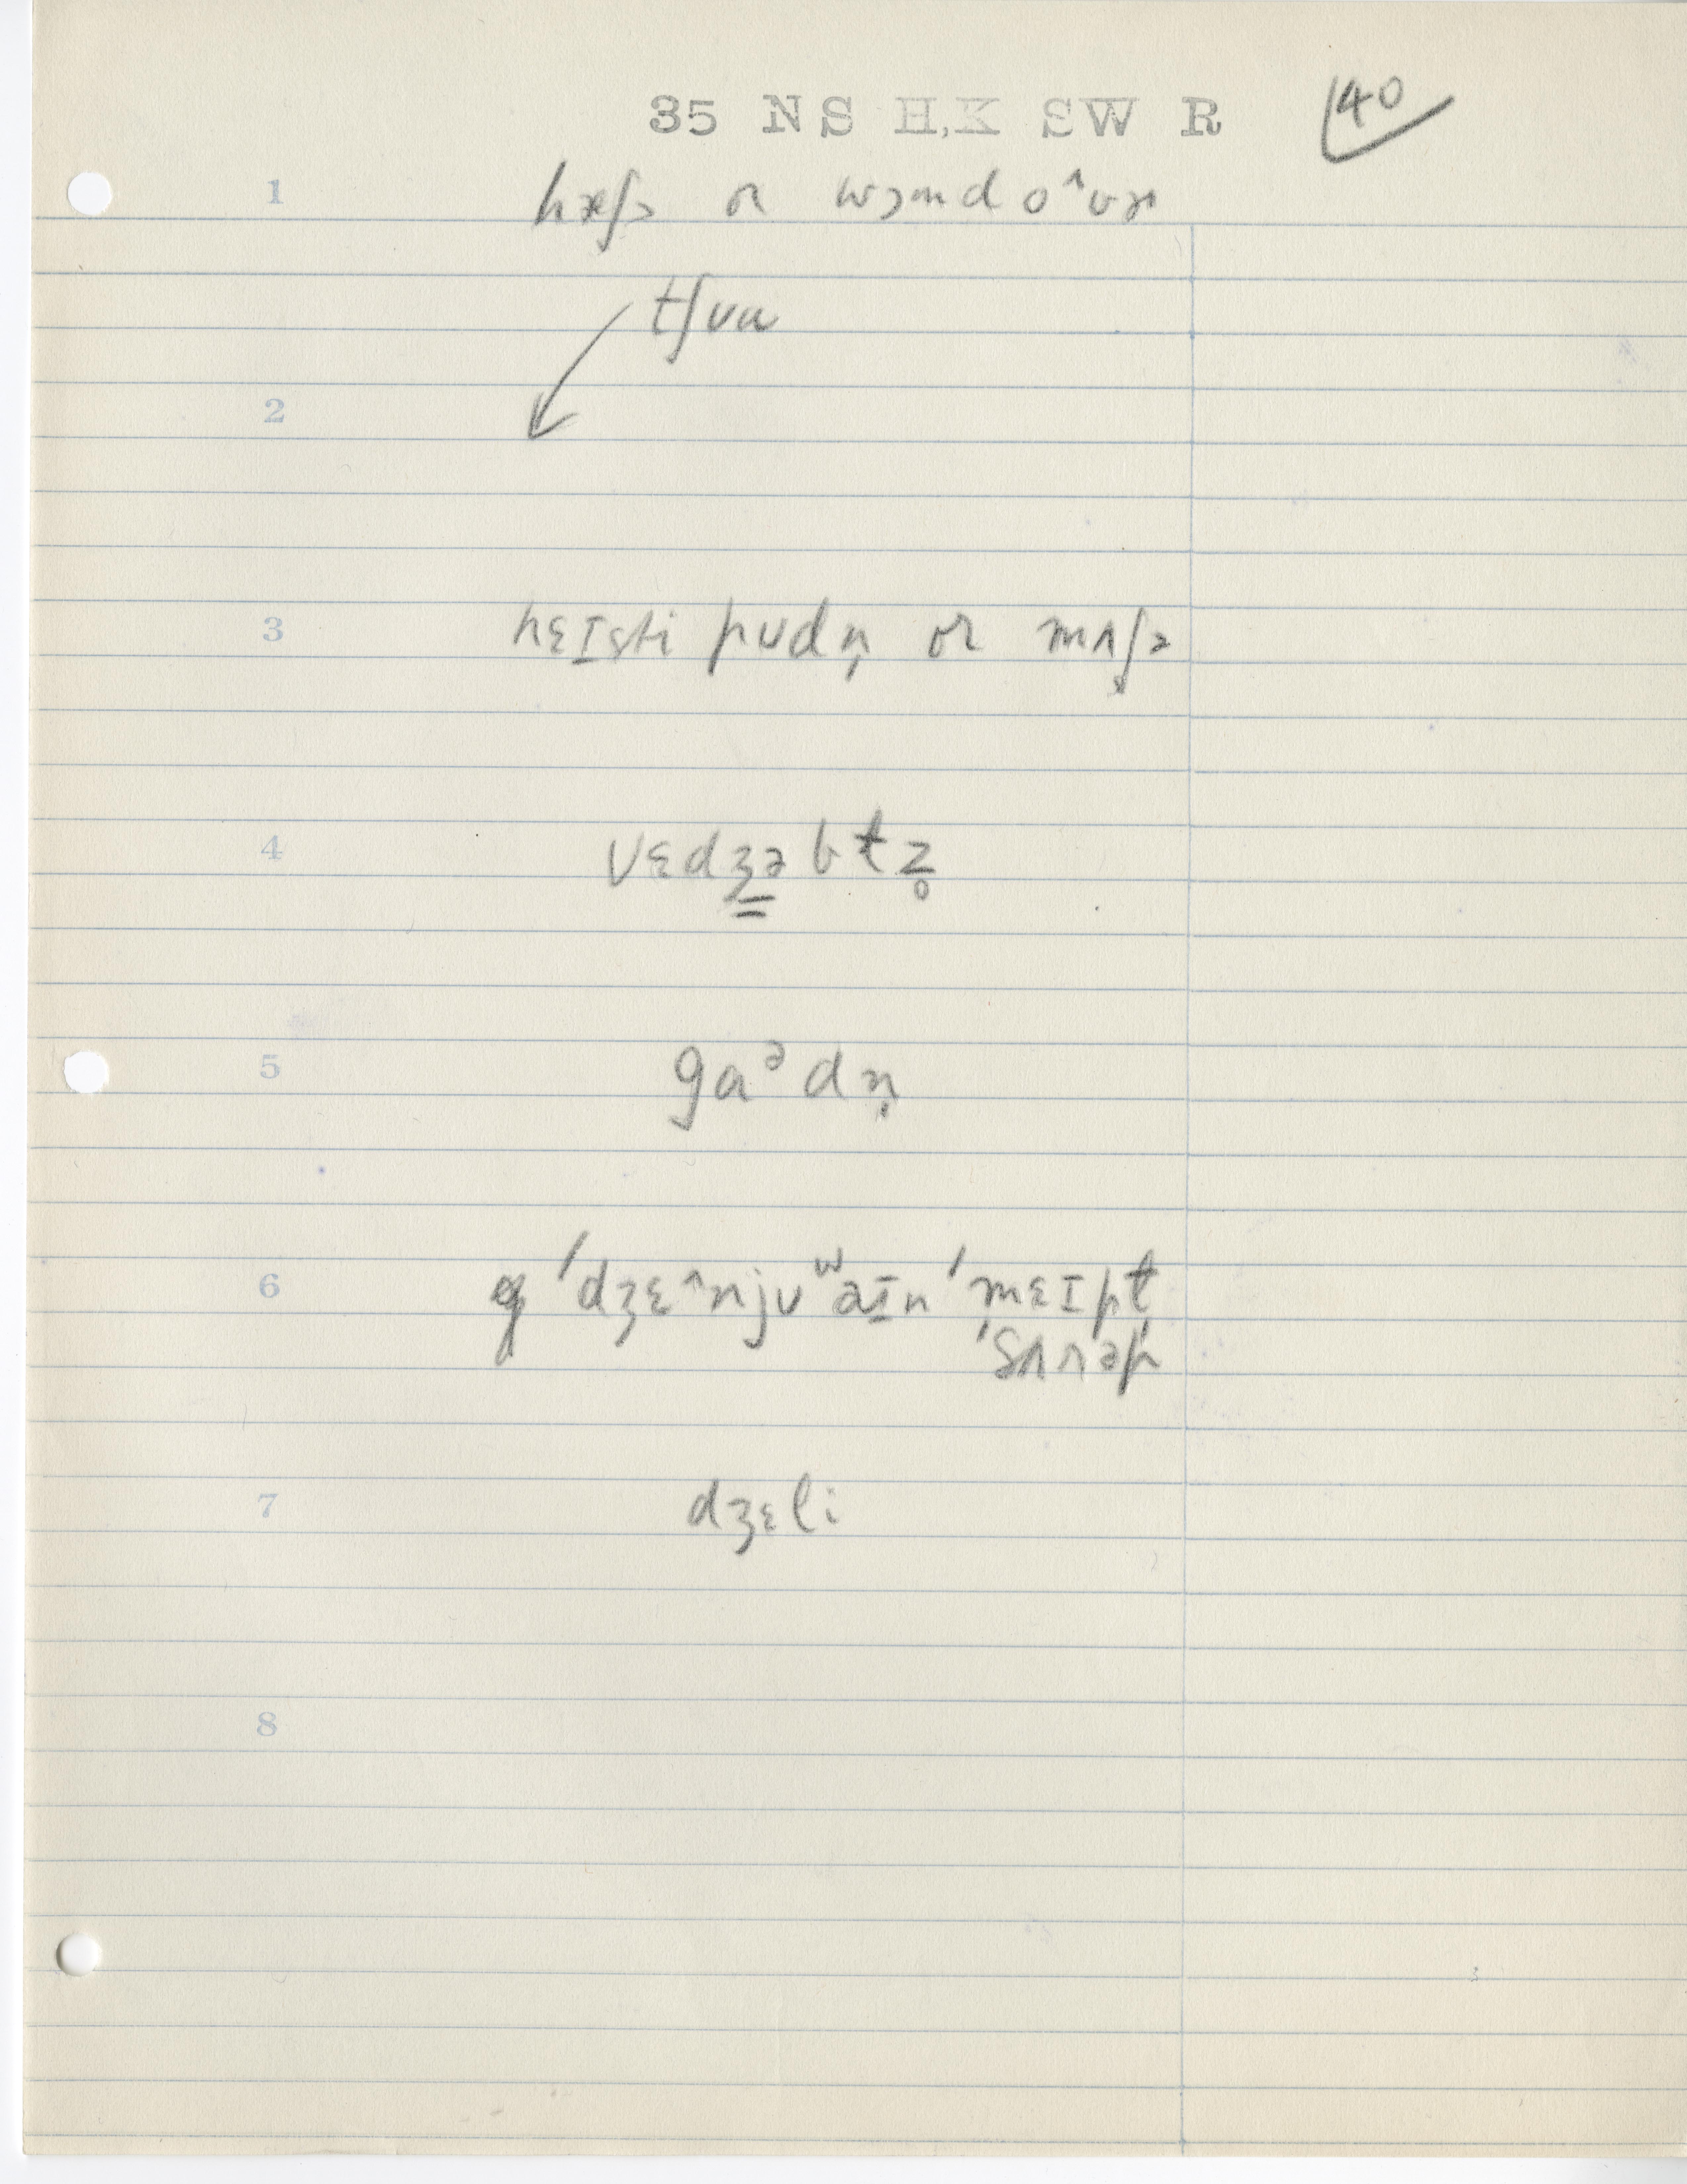 35 N S H,K S W R 140
1 hæʃ or wɔmd o^vɚ
tʃua
2
3 hɛɪsti pudn̩ or mʌʃ
4 vɛdʒəbtz̥
5 gaᵊdn̩
6 'dʒɛ^njuʷaɪn 'mɛɪpt
'sʌrəp
7 dʒɛli
8